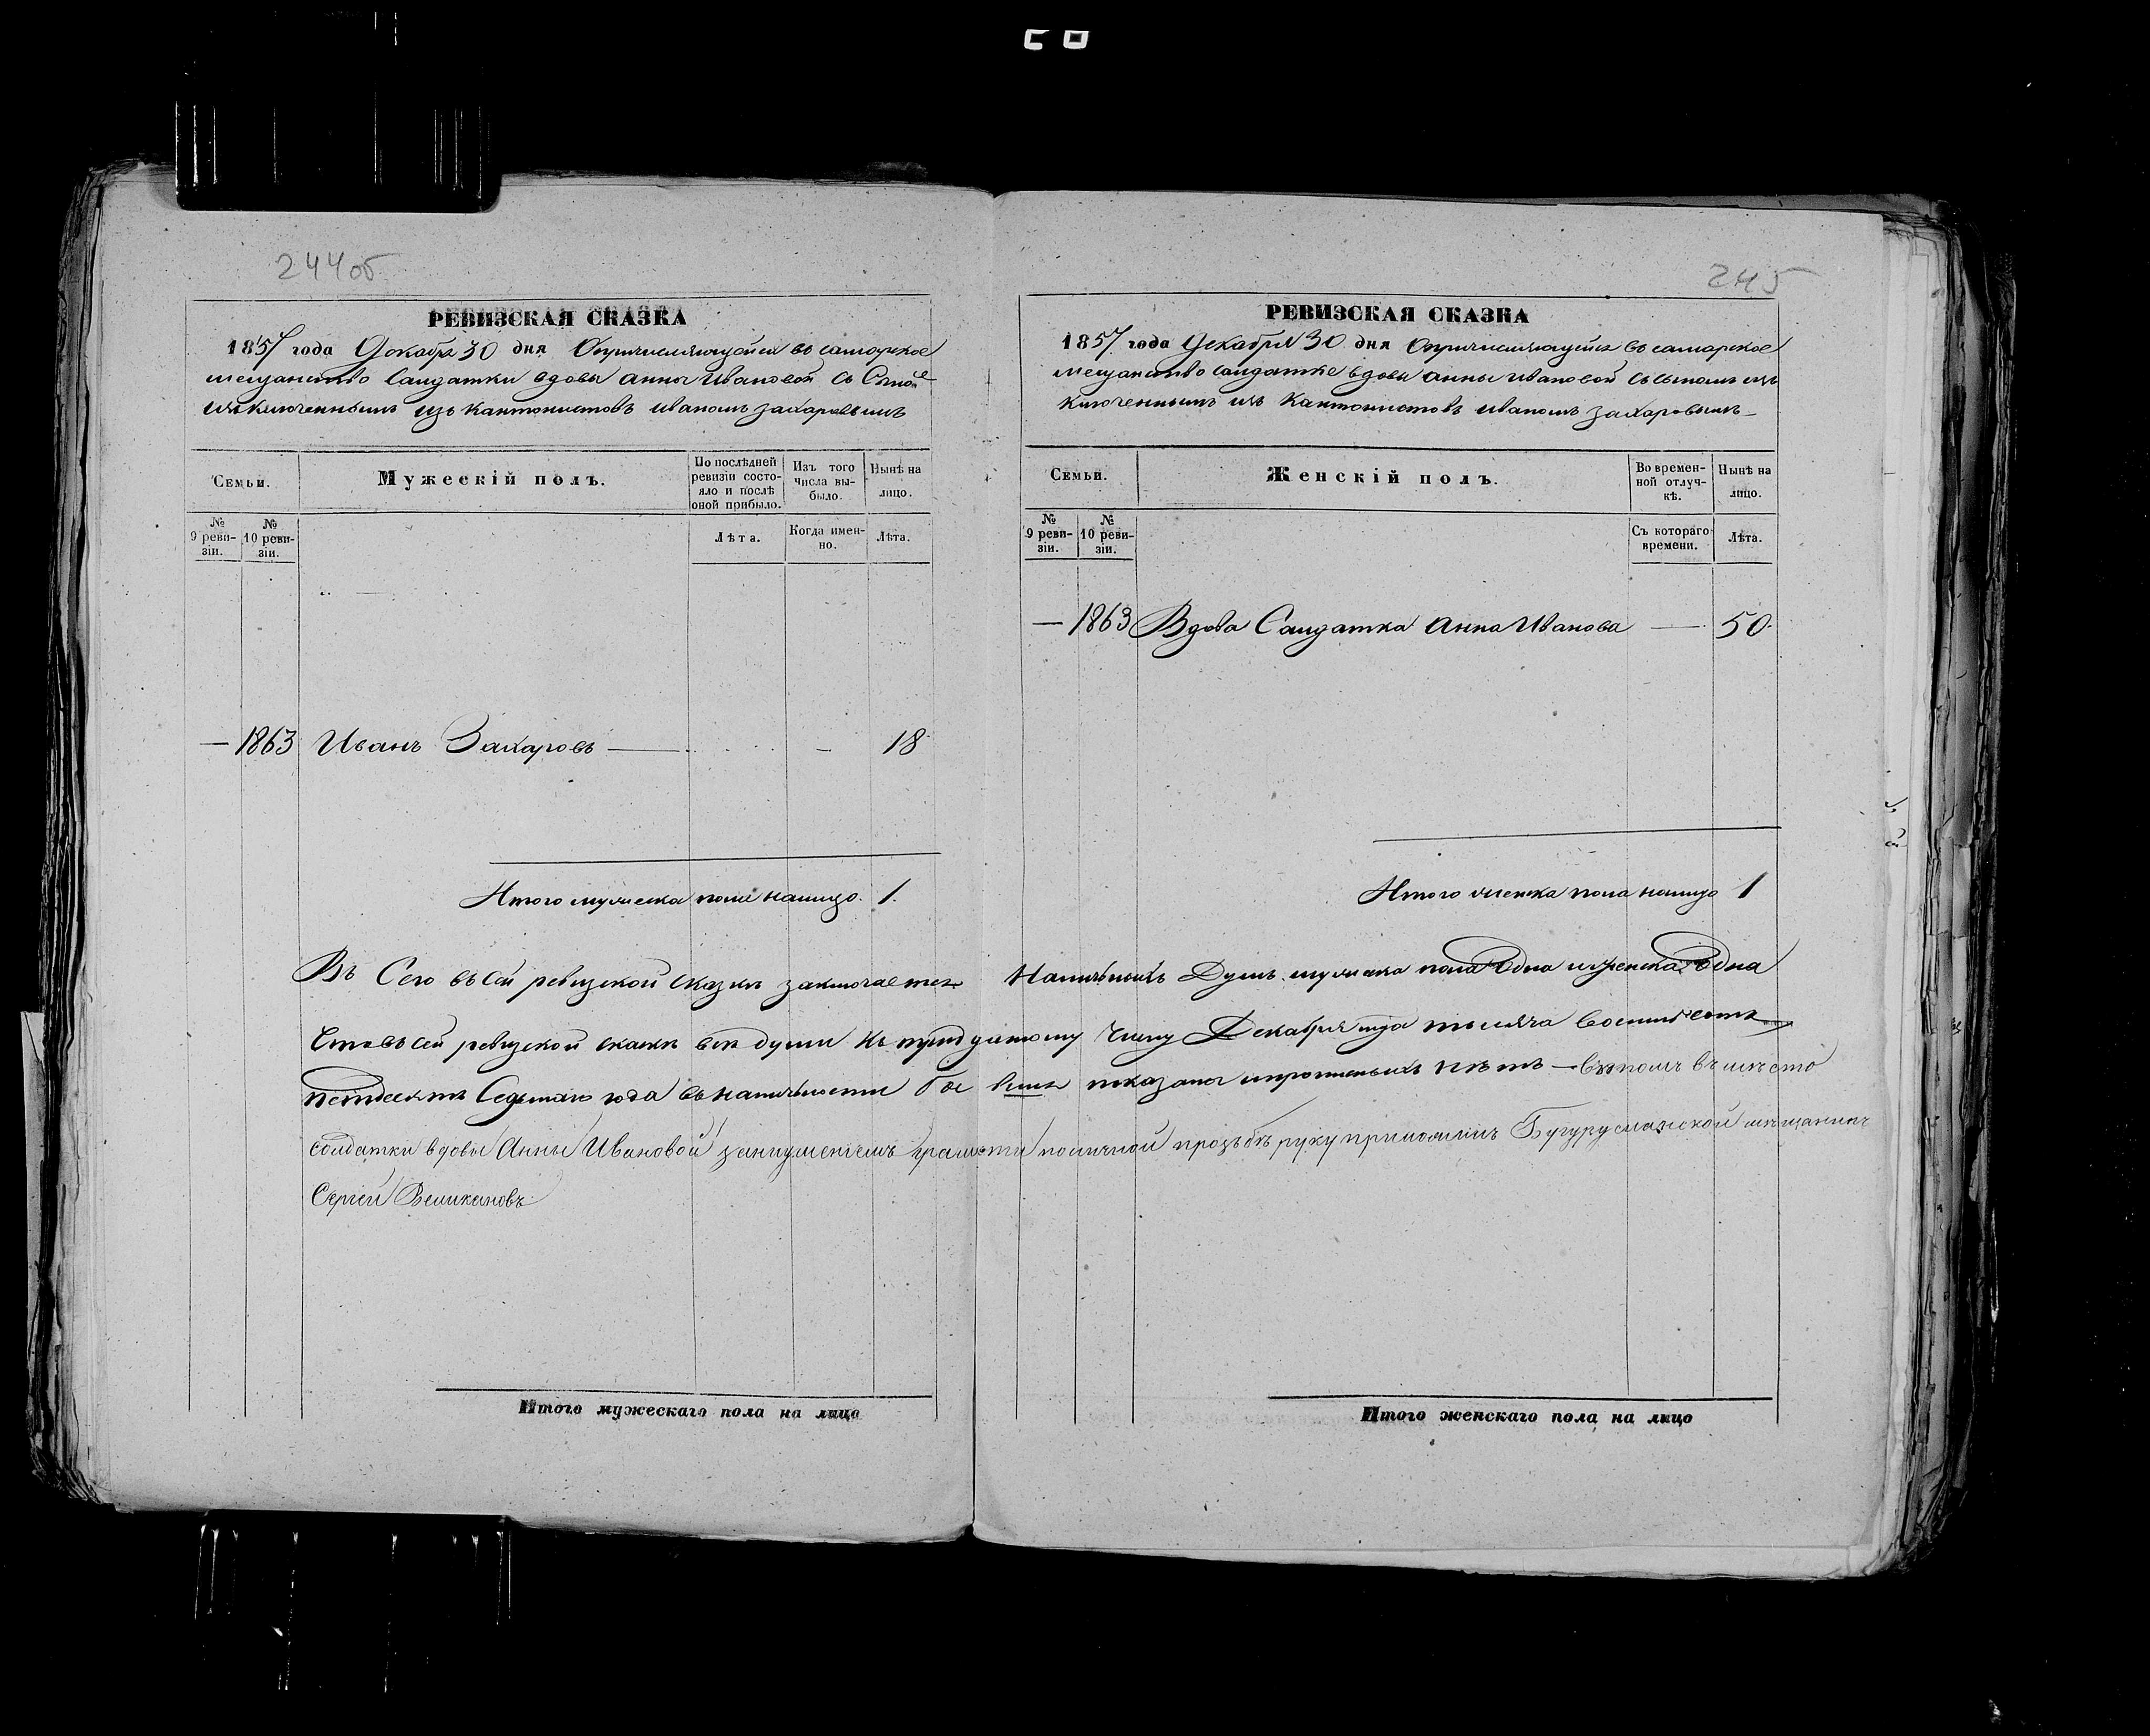 244об
РЕВИЗСКАЯ СКАЗКА
1857 года Декабря 30 дня Опричисляющейся въ самарское
мещанство Салдатки вдовы Анны Ивановой съ Сыном
изключеннымъ изъ Кантонистовъ Иваномъ Захаровымъ
Семьи.
Мужескій полъ.
По послѣдней ревизіи состояло и послѣ оной прибыло.
Изъ того числа выбыло.
Нынѣ на лицо.
№ 9 ревизіи.
№ 10 ревизіи.
Лѣта.
Когда именно.
Лѣта.
— 1863 Иванъ Захаровъ — — 18
Итого мужеска пола налицо. 1.
245
РЕВИЗСКАЯ СКАЗКА
1857 года Декабря 30 дня Опричисляющейся въ самарское
мещанство Салдатке вдовы Анны Ивановой съ сыномъ из
ключеннымъ изъ Кантонистовъ Иваномъ Захаровымъ
Семьи.
Женскій полъ.
Во временной отлучкѣ.
Нынѣ на лицо.
№ 9 ревизіи.
№ 10 ревизіи.
Съ котораго времени.
Лѣта.
— 1863 Вдова Салдатка Анна Иванова — 50
Итого женска пола налицо 1
Въ Сего въ сей ревизской сказки заключается Наличныхъ Душъ мужеска пола Одна и женска Одна
Что въ сей ревизской сказки все души къ тридцатому Числу Декабря тысяча восимсотъ
петдесятъ Седьмаго года въ наличности Все показаны и пропшеныхъ нѣтъ — въ томъ въ место
солдатки вдовы Анны Ивановой занеумениемъ грамоты поличной прозъбѣ руку приложилъ Бугурусланской мѣщанинъ
Сергей Великановъ
Итого мужескаго пола на лицо
Итого женскаго пола на лицо